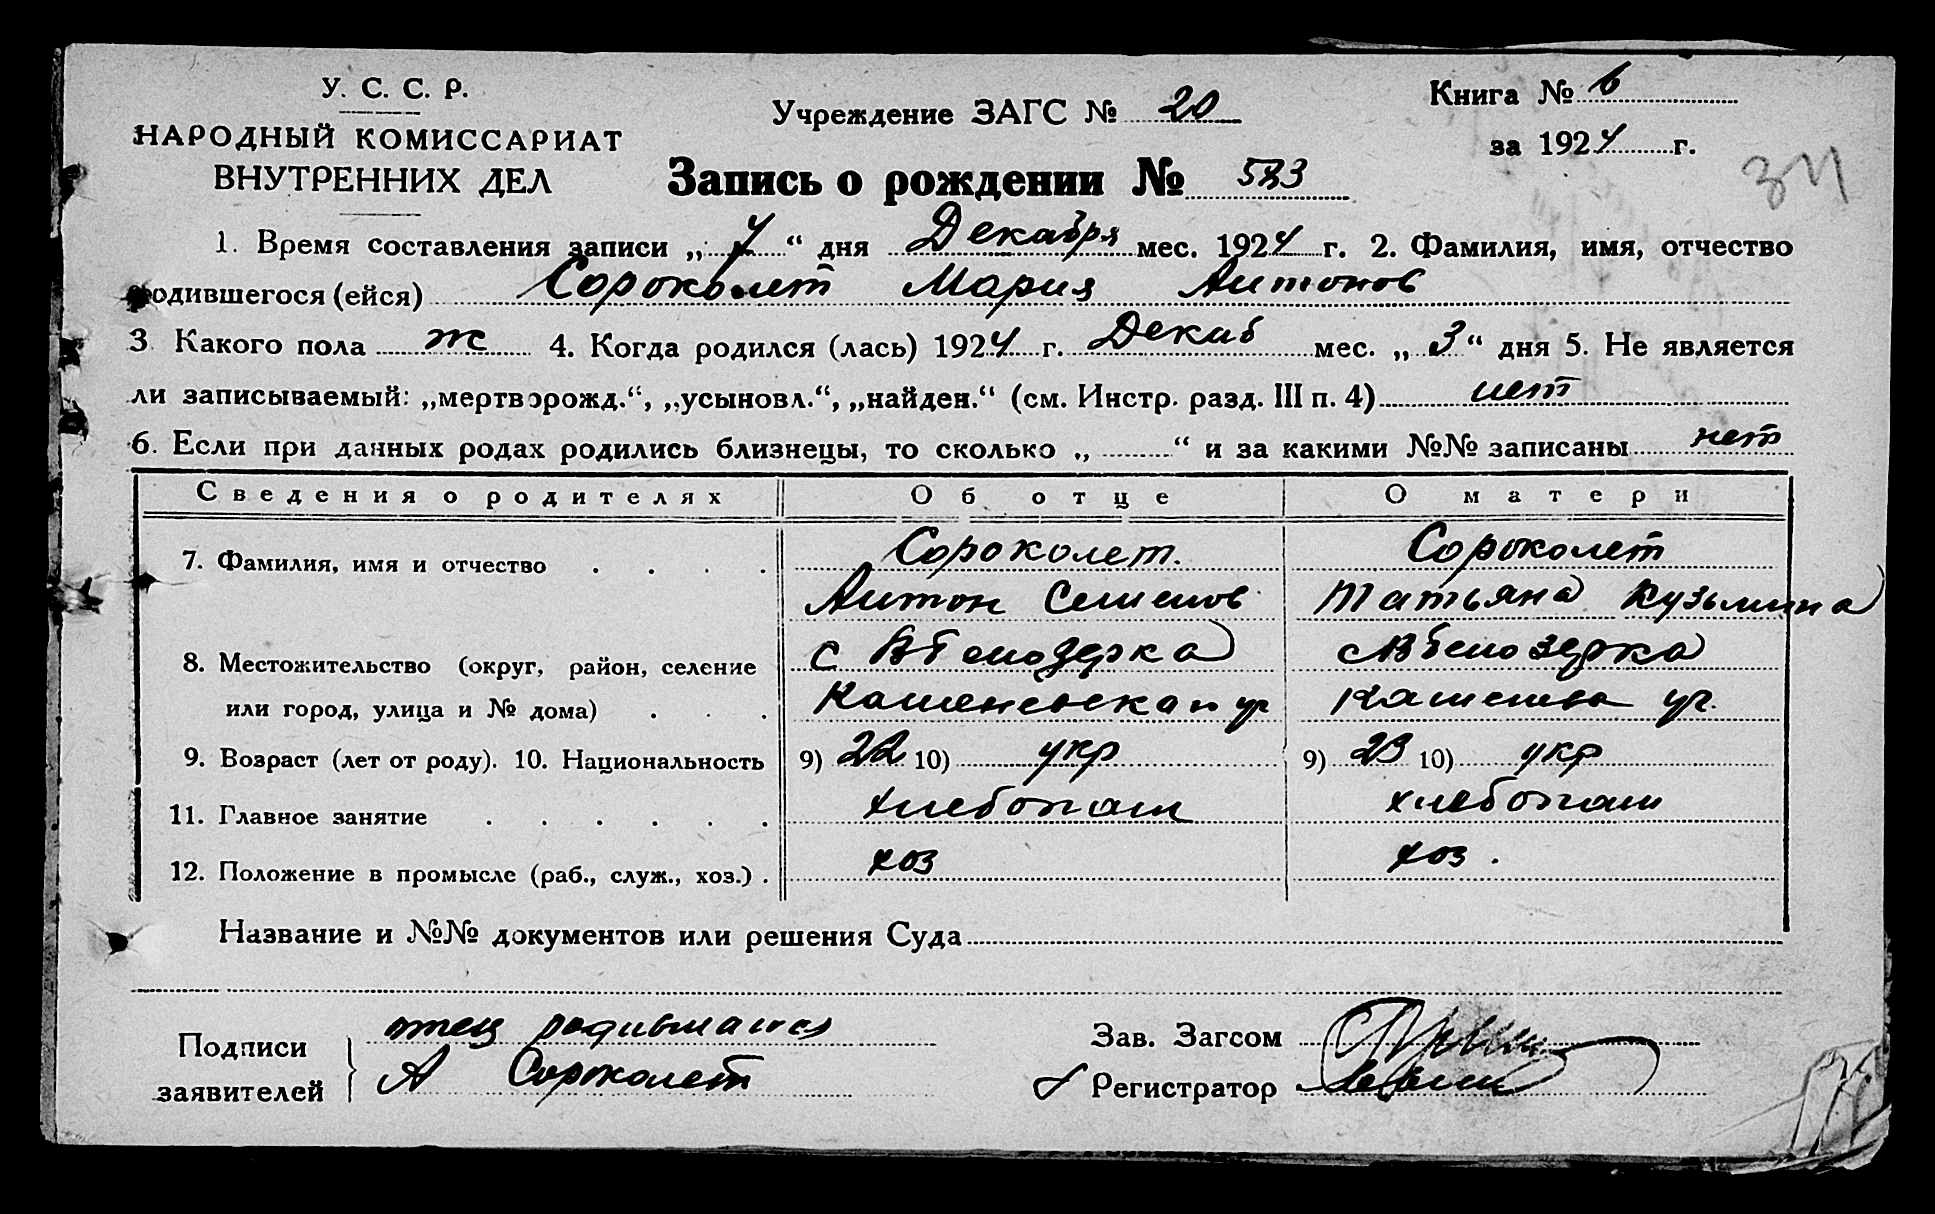 У. С. С. Р.
НАРОДНЫЙ КОМИССАРИАТ
ВНУТРЕННИХ ДЕЛ
Учреждение ЗАГС № 20
Книга № 6
за 1924 г.
Запись о рождении № 583
34
1. Время составления записи „ 7 “ дня Декабря мес. 1924 г. 2. Фамилия, имя, отчество
родившегося (ейся) Сороколет Мария Антонов
3. Какого пола ж 4. Когда родился (лась) 1924 г. Декаб мес. „ 3 “ дня 5. Не является
ли записываемый: „мертворожд.“, „усыновл.“, „найден.“ (см. Инстр. разд. III п. 4) нет
6. Если при данных родах родились близнецы, то сколько „ “ и за какими №№ записаны нет
Сведения о родителях Об отце О матери
7. Фамилия, имя и отчество Сороколет. Сороколет
Антон Семенов Татьяна Кузьмина
8. Местожительство (округ, район, селение с В Белозерка с В Белозерка
или город, улица и № дома)
9. Возраст (лет от роду). 10. Национальность 9) 22 10) укр 9) 23 10) укр
11. Главное занятие хлебопаш хлебопаш
12. Положение в промысле (раб., служ., хоз.) хоз хоз.
Название и №№ документов или решения Суда
Подписи
заявителей
отец родившагося
А Сороколет
Зав. Загсом
Регистратор